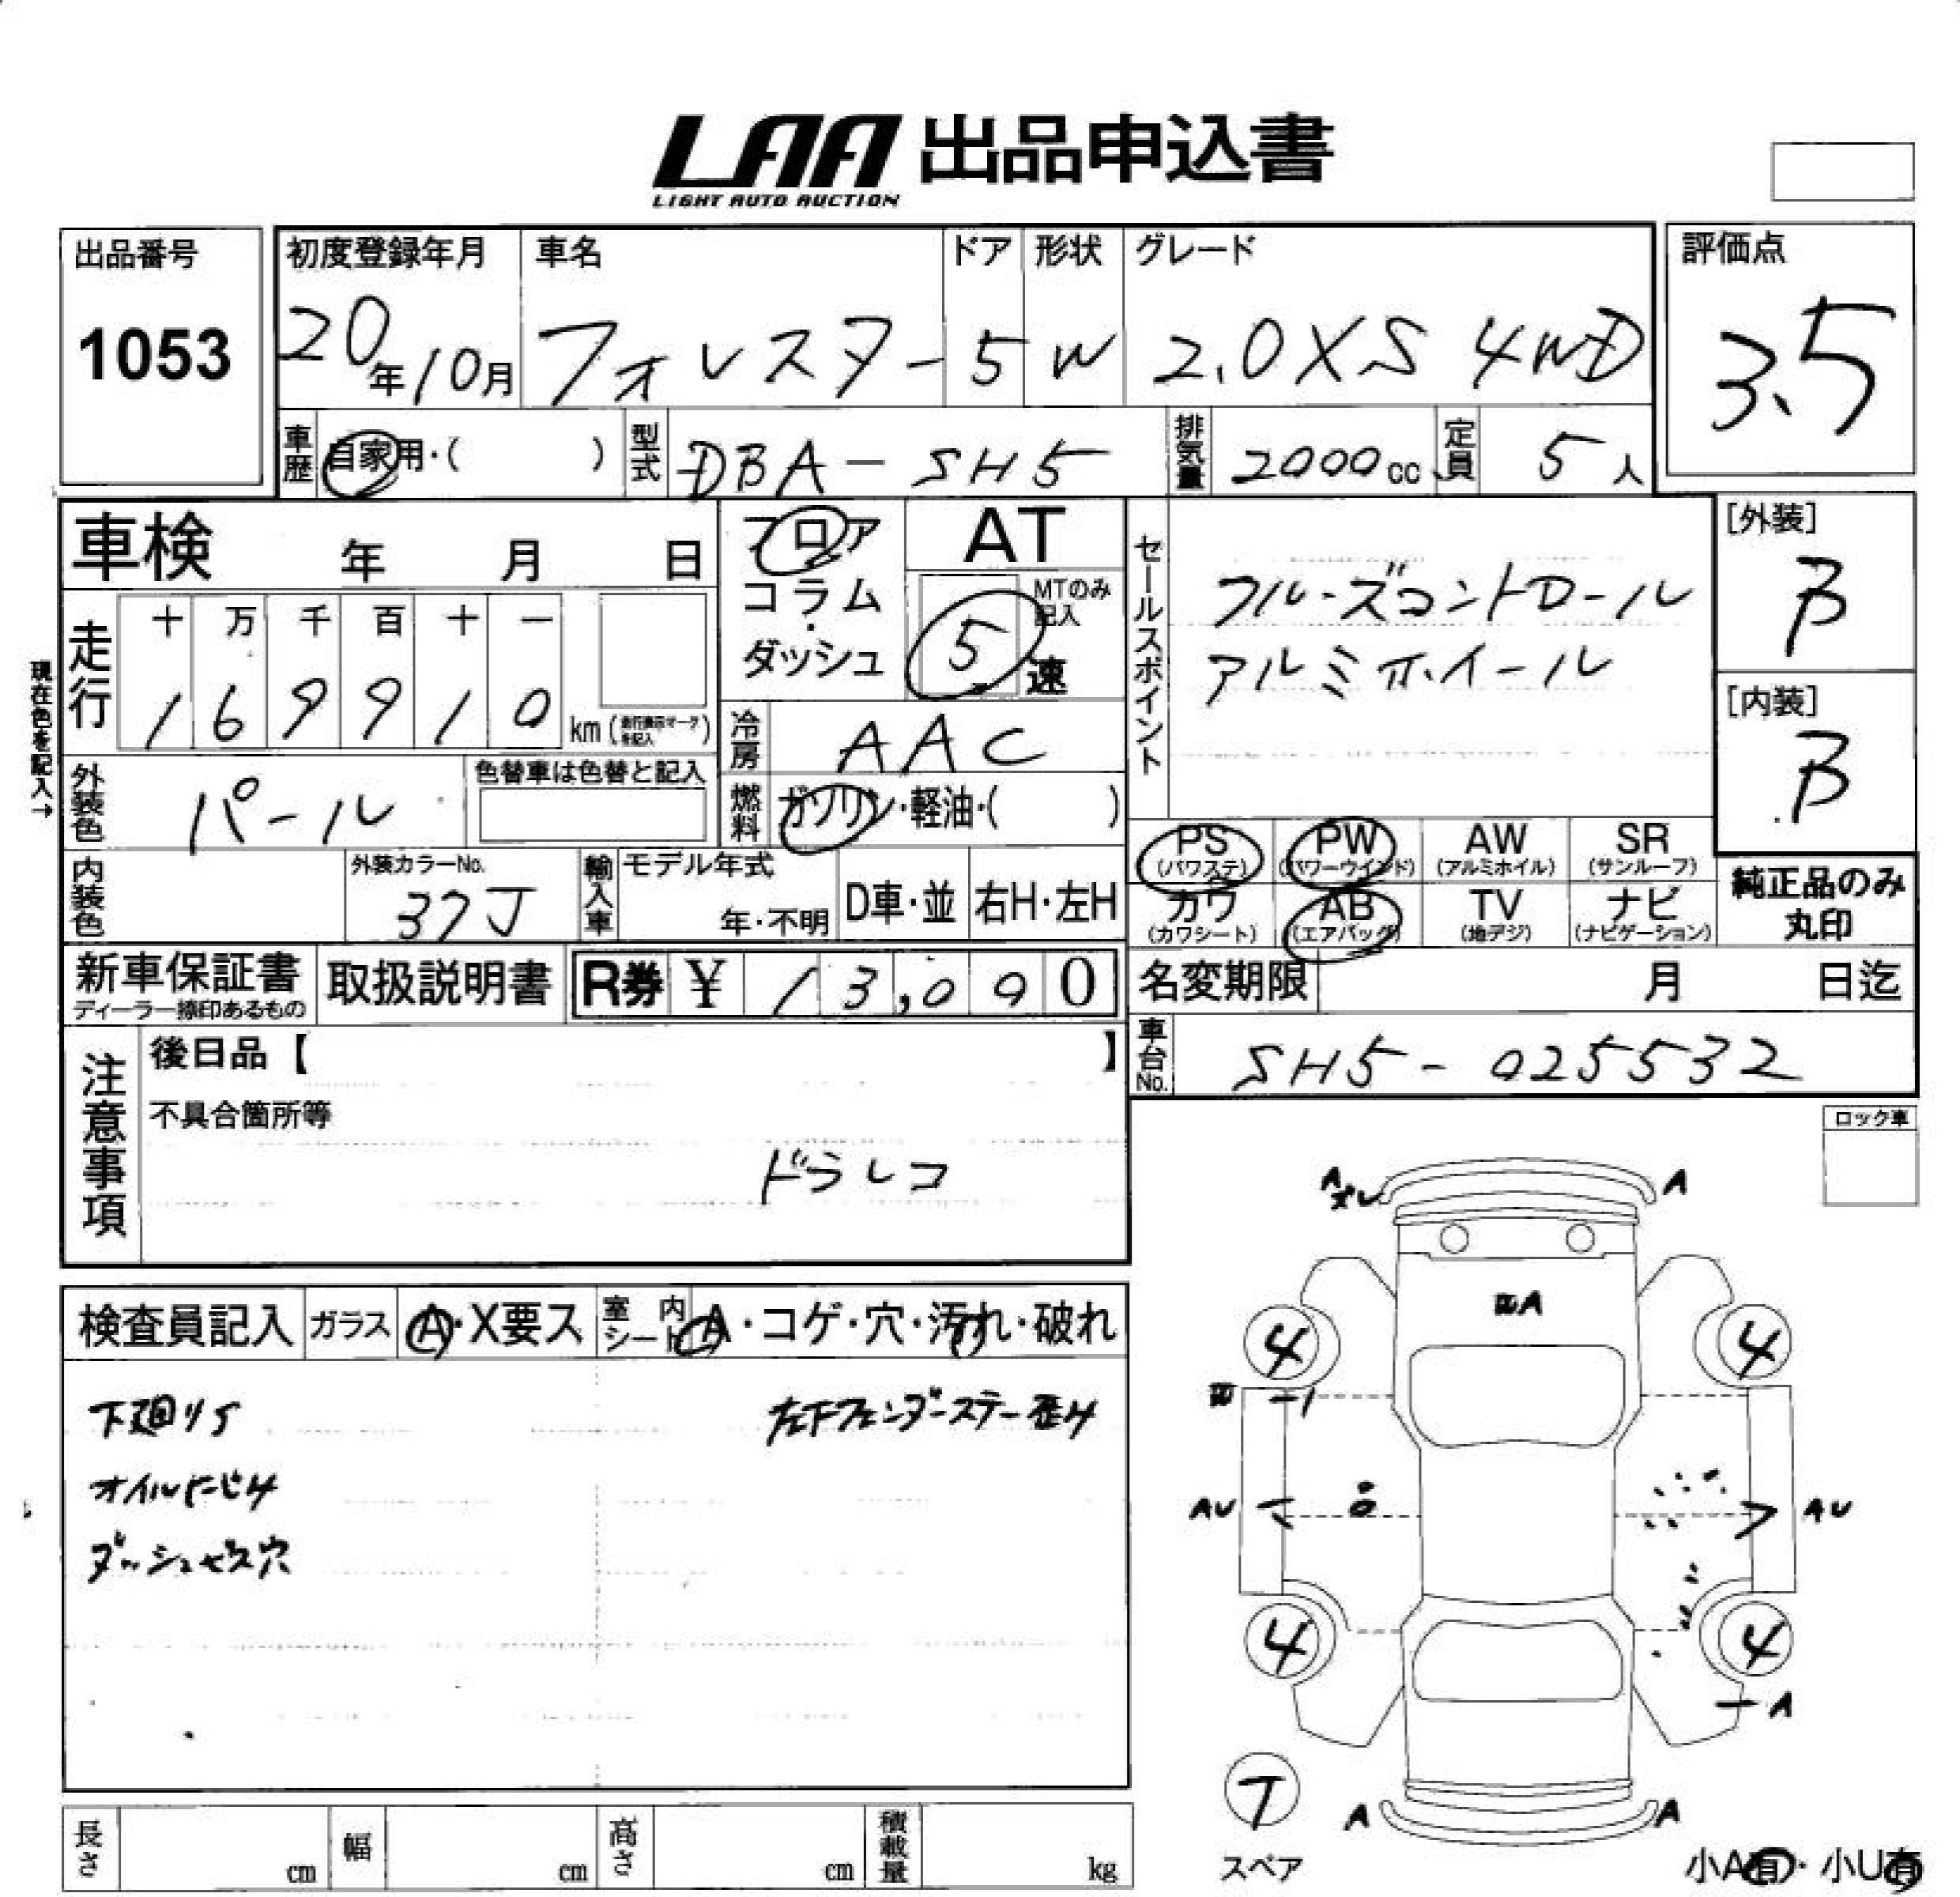 LAA 出品申込書
LIGHT AUTO AUCTION
出品番号
1053
初度登録年月
20年10月
車名
フォレスター
ドア
5
形状
W
グレード
2.0XS 4WD
評価点
3.5
車歴
自家用・( )
型式
DBA-SH5
排気量
2000cc
定員
5人
車検 年 月 日
フロア
コラム
・
ダッシュ
AT
MTのみ記入
5速
セールスポイント
クルーズコントロール
アルミホイール
[外装]
B
[内装]
B
現在色を記入→
走行
十 万 千 百 十 一
1 6 9 9 1 0
km (走行表示マークを記入)
冷房
AAC
外装色
パール
色替車は色替と記入
燃料
ガソリン・軽油・( )
内装色
外装カラーNo.
37J
輸入車
モデル年式
年・不明
D車・並
右H・左H
PS
(パワステ)
PW
(パワーウインド)
AW
(アルミホイル)
SR
(サンルーフ)
カワ
(カワシート)
AB
(エアバッグ)
TV
(地デジ)
ナビ
(ナビゲーション)
純正品のみ
丸印
新車保証書
ディーラー捺印あるもの
取扱説明書
R券 ¥ 13,090
名変期限 月 日迄
車台No.
SH5-025532
注意事項
後日品【 】
不具合箇所等
ドラレコ
ロック車
検査員記入
ガラス
A・X要ス
室内
シート
A・コゲ・穴・汚れ・破れ
下廻りS
左下フェンダーステー歪み
オイルにじみ
ダッシュビス穴
A
ズレ
A
A
4
4
AU
AU
4
4
A
7
スペア
A
A
小A有・小U有
長さ cm
幅 cm
高さ cm
積載量 kg